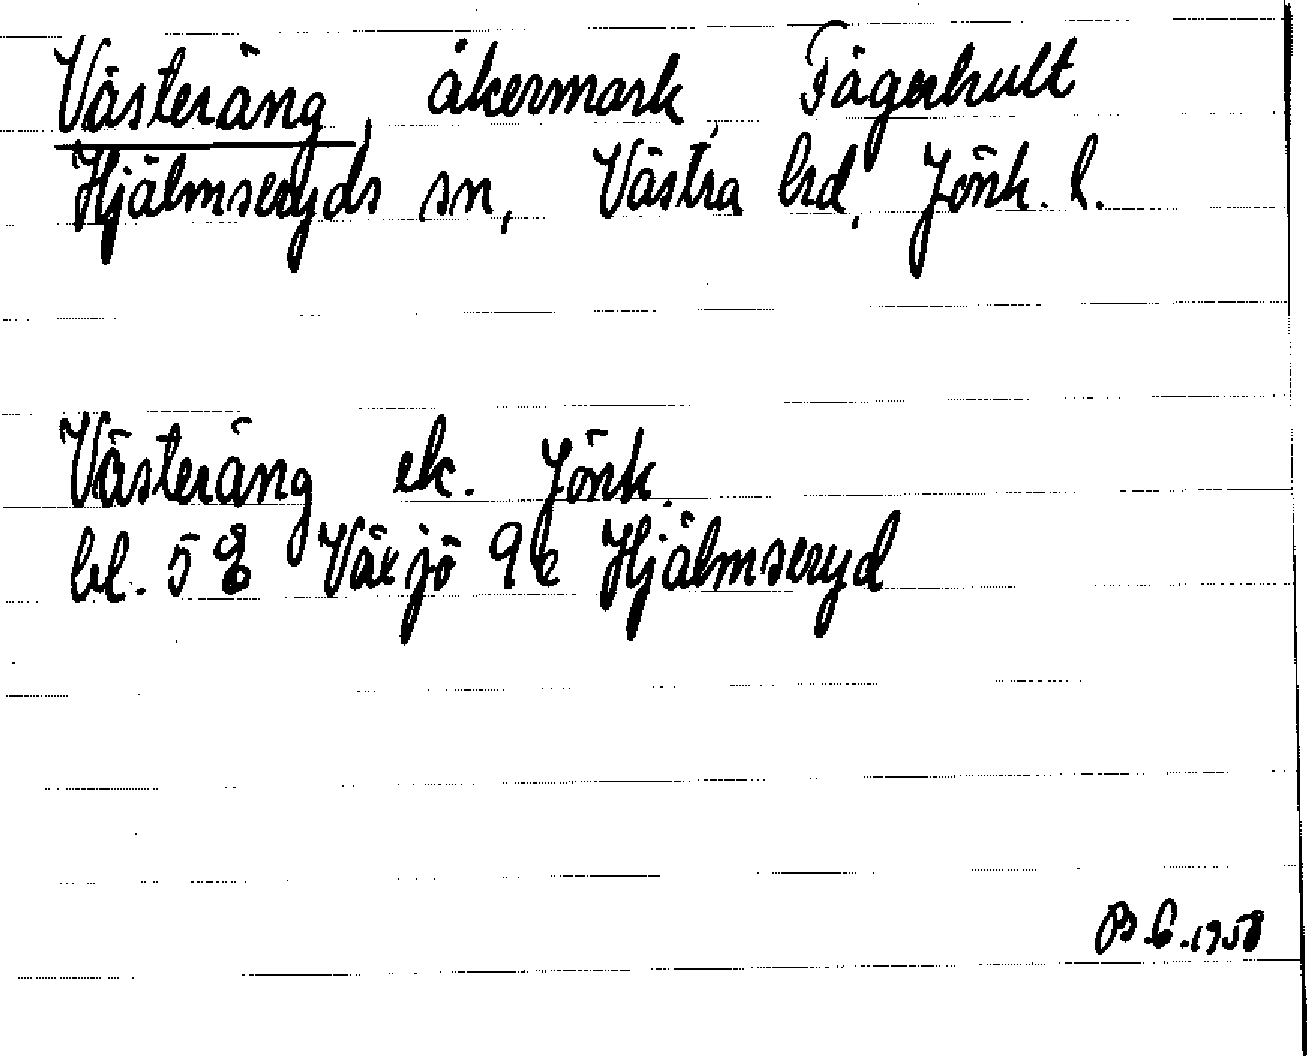 Västeräng, åkermark, Fägerhult
Hjälmseryds sn, Västra hrd, Jönk. l.
Västeräng ek. Jönk.
bl. 5 E Växjö 9 e Hjälmseryd
1958